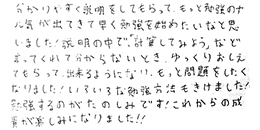 分かりやすく説明をしてもらって、もっと勉強のやる
気が出てきて早く勉強を始めたいなと思
いました!説明の中で、「計算してみよう」など
言ってくれて分からないとき、ゆっくりおしえ
てもらって、出来るようになり、もっと問題をしたく
なりました!いろいろな勉強方法もきけました!
勉強するのがたのしみです!これからの成
長が楽しみになりました!!